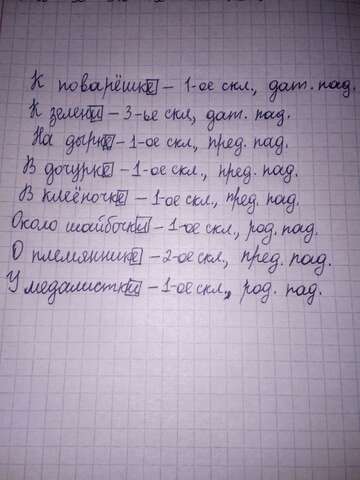 К поварёшке – 1-ое скл., дат. пад.
К зелени – 3-ье скл, дат. пад.
На дырке – 1-ое скл, пред. пад.
В дочурке – 1-ое скл., пред. пад.
В клеёночке – 1-ое скл, пред. пад.
Около шайбочки – 1-ое скл., род. пад.
О племяннике – 2-ое скл, пред. пад.
У медалистки – 1-ое скл., род. пад.